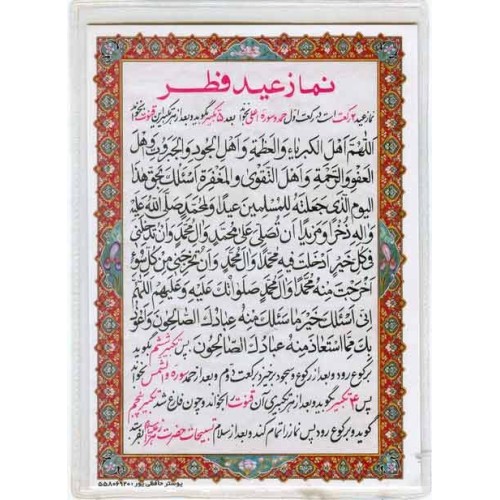 نماز عید فطر
نماز عید ۲ رکعت است در رکعت اول حمد و سوره اعلی بخواند بعد ۵ تکبیر گوید و بعد از هر تکبیر این قنوت بخواند
اللهم اهل الکبریاء والعظمة واهل الجود والجبروت واهل
العفو والرحمة واهل التقوی والمغفرة اسئلک بحق هذا
الیوم الذی جعلته للمسلمین عیدا ولمحمد صلی الله علیه
واله ذخرا ومزیدا ان تصلی علی محمد وال محمد وان تدخلنی
فی کل خیر ادخلت فیه محمدا وال محمد وان تخرجنی من کل سوء
اخرجت منه محمدا وال محمد صلواتک علیه وعلیهم اللهم
انی اسئلک خیر ما سئلک منه عبادک الصالحون واعوذ
بک مما استعاذ منه عبادک الصالحون. پس تکبیر ششم گوید
برکوع رود و بعد از رکوع و سجود برخیزد برکعت دوم و بعد از حمد سوره والشمس بخواند
پس ۴ تکبیر گوید و بعد از هر تکبیری آن قنوت را بخواند و چون فارغ شد تکبیر پنجم
گوید و برکوع رود و پس نماز را تمام کند و بعد از سلام تسبیحات حضرت زهرا
پوستر حافظی پور : ۵۵۸۰۶۹۲۰